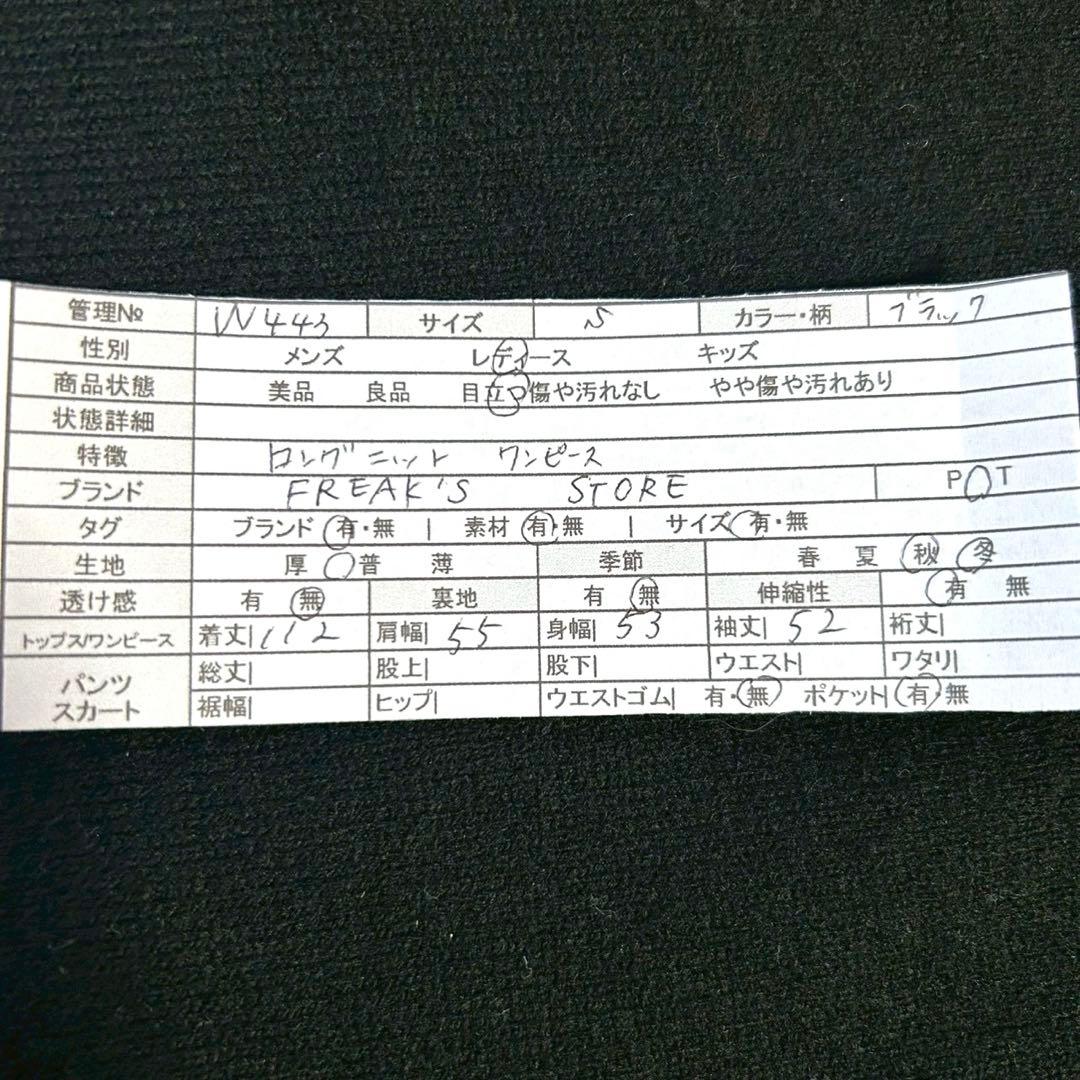 管理№ W443 サイズ S カラー・柄 ブラック
性別 メンズ レディース キッズ
商品状態 美品 良品 目立つ傷や汚れなし やや傷や汚れあり
状態詳細
特徴 ロングニット ワンピース
ブランド FREAK'S STORE P T
タグ ブランド 有・無 | 素材 有・無 | サイズ 有・無
生地 厚 普 薄 季節 春 夏 秋 冬
透け感 有 無 裏地 有 無 伸縮性 有 無
トップス/ワンピース 着丈| 112 肩幅| 55 身幅| 53 袖丈| 52 裄丈|
パンツ スカート 総丈| 股上| 股下| ウエスト| ワタリ|
裾幅| ヒップ| ウエストゴム| 有・無 ポケット| 有・無